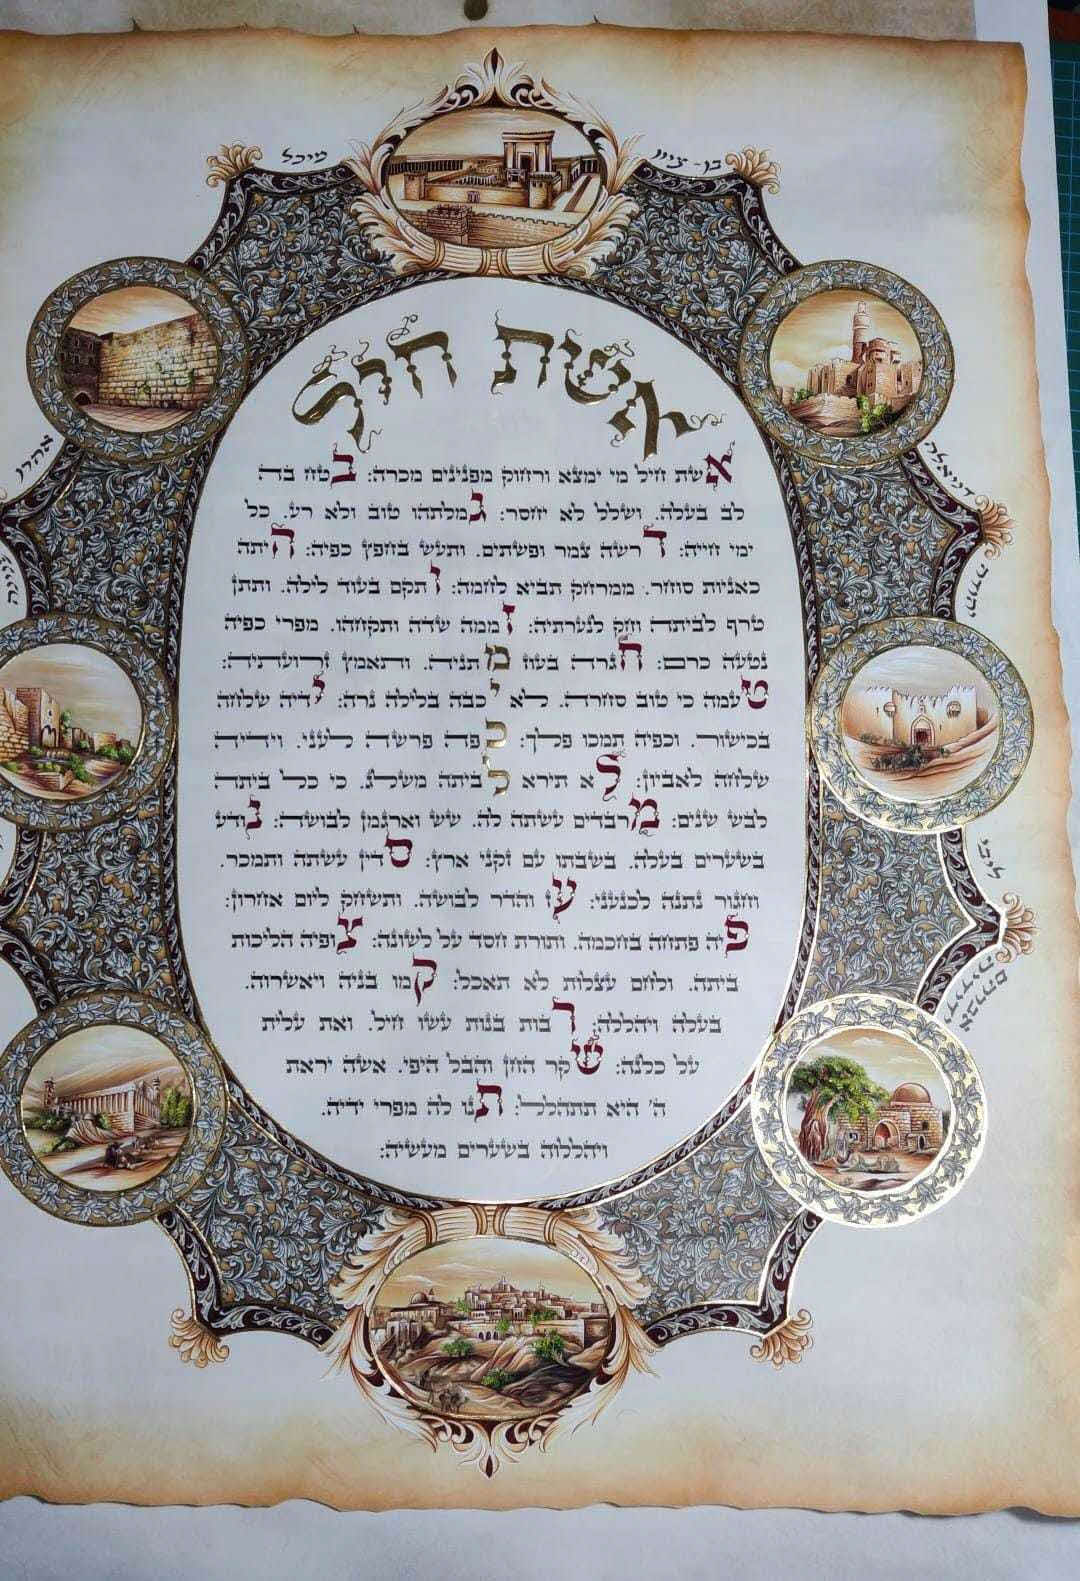 מיכל
בן-ציון
אהרן
דניאלה
יהודה
לוי
אברהם
אשת חיל
אשת חיל מי ימצא ורחוק מפנינים מכרה: בטח בה
לב בעלה. ושלל לא יחסר: גמלתהו טוב ולא רע. כל
ימי חייה: דרשה צמר ופשתים. ותעש בחפץ כפיה: היתה
כאניות סוחר. ממרחק תביא לחמה: ותקם בעוד לילה. ותתן
טרף לביתה וחק לנערתיה: זממה שדה ותקחהו. מפרי כפיה
נטעה כרם: חגרה בעוז מתניה. ותאמץ זרועותיה:
טעמה כי טוב סחרה. לא יכבה בלילה נרה: ידיה שלחה
בכישור. וכפיה תמכו פלך: כפה פרשה לעני. וידיה
שלחה לאביון: לא תירא לביתה משלג. כי כל ביתה
לבש שנים: מרבדים עשתה לה. שש וארגמן לבושה: נודע
בשערים בעלה. בשבתו עם זקני ארץ: סדין עשתה ותמכר.
וחגור נתנה לכנעני: עז והדר לבושה. ותשחק ליום אחרון:
פיה פתחה בחכמה. ותורת חסד על לשונה: צופיה הליכות
ביתה. ולחם עצלות לא תאכל: קמו בניה ויאשרוה.
בעלה ויהללה: רבות בנות עשו חיל. ואת עלית
על כלנה: שקר החן והבל היפי. אשה יראת
ה' היא תתהלל: תנו לה מפרי ידיה.
ויהללוה בשערים מעשיה: